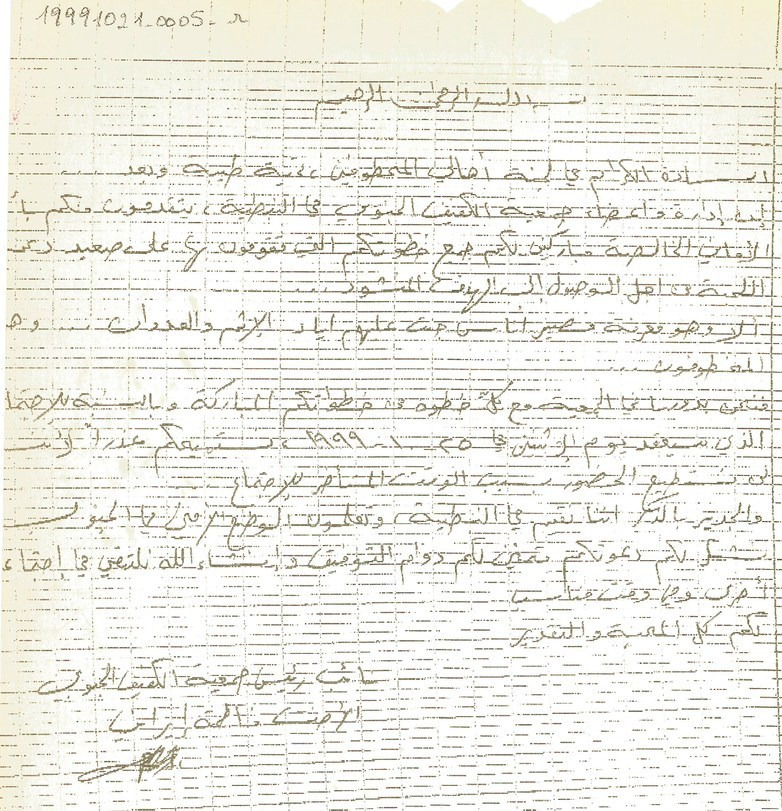 19991021-0005-r
بسم الله الرحمن الرحيم
السادة الكرام في لجنة أهالي المخطوفين، تحية طيبة وبعد ...
إن إدارة وأعضاء جمعية الكفيف الجنوبي في النبطية، يتقدمون منكم بأ
الأماني الخالصة مباركين لكم جميع خطواتكم التي تقومون بها على صعيد
اللجنة من اجل الوصول إلى الهدف المنشود ...
الا وهو معرفة مصير أناس جنت عليهم اياد الإثم والعدوان ... وه
المخطوفون ...
فنحن بدورنا في الجمعية مع كلّ خطوة من خطواتكم المباركة وبالنسبة للإجتما
الذي سيعقد يوم الإثنين في ٢٥ - ١٠ - ١٩٩٩، نستميحكم عذراً لأننا
لن نستطيع الحضور بسبب الوقت المتأخر للإجتماع
والجدير بالذكر اننا نقيم في النبطية، وتعلمون الوضع الأمني في الجنوب
نشكر لكم دعوتكم متمنين لكم دوام التوفيق وإنشاء الله نلتقي في إجتماع
أخرى وفي وقت مناسب
لكم كل المحبة والتقدير
نائب رئيس جمعية الكفيف الجنوبي
الأخت فاطمة